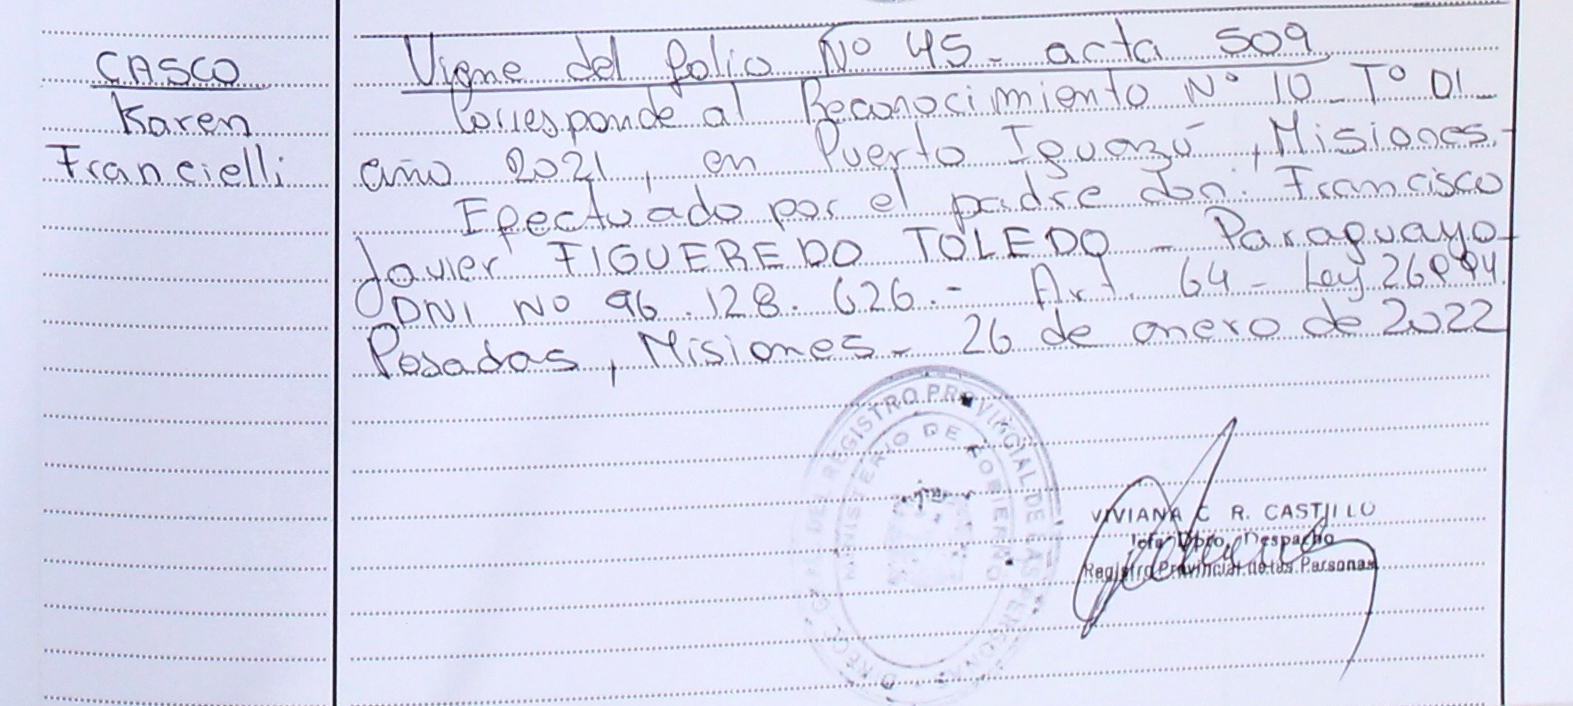 CASCO
Karen
Francielli
Viene del folio Nº 45 - acta 509
Corresponde al Reconocimiento Nº 10 - Tº 01 -
año 2021, en Puerto Iguazú, Misiones.-
Efectuado por el padre don: Francisco
Javier FIGUEREDO TOLEDO - Paraguayo -
DNI Nº 96.128.626.- Art. 64 - Ley 26994.
Posadas, Misiones - 26 de enero de 2022
DIRECC. GRAL. DEL REGISTRO PROVINCIAL DE LAS PERSONAS
MINISTERIO DE GOBIERNO
VIVIANA C. R. CASTILLO
Jefa Dpto. Despacho
Registro Provincial de las Personas